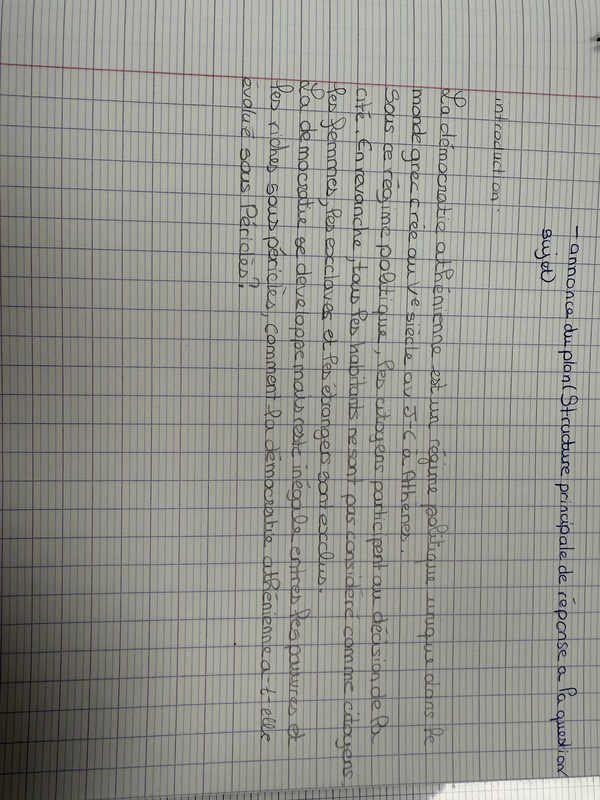 - annonce du plan (Structure principale de réponse a la question
sujet)
introduction:
La démocratie athénienne est un régime politique unique dans le
monde grec crée au Ve siècle av J-C à Athènes.
Sous ce régime politique, les citoyens participent au décision de la
cité. En revanche, tous les habitants ne sont pas considéré comme citoyens,
les femmes, les esclaves et les étrangers sont exclus.
La démocratie se developpe mais reste inégale entres les pauvres et
les riches sous périclès, comment la démocratie athénienne a-t elle
évolué sous Périclès?